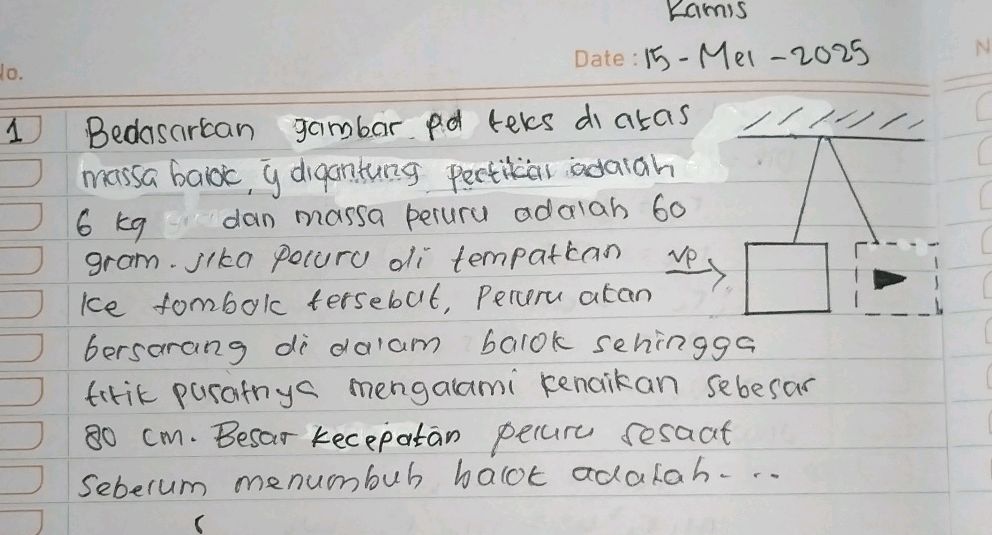 Kamis
No.
Date : 15 - Mei - 2025
N
1 Bedasarkan gambar pd teks di atas
massa balok, yg digantung partikel adalah
6 kg dan massa peluru adalah 60
gram. Jika peluru di tempatkan
vp
ke tombak tersebut, peluru akan
bersarang di dalam balok sehingga
titik pusatnya mengalami kenaikan sebesar
80 cm. Besar kecepatan peluru sesaat
sebelum menumbuh balok adalah...